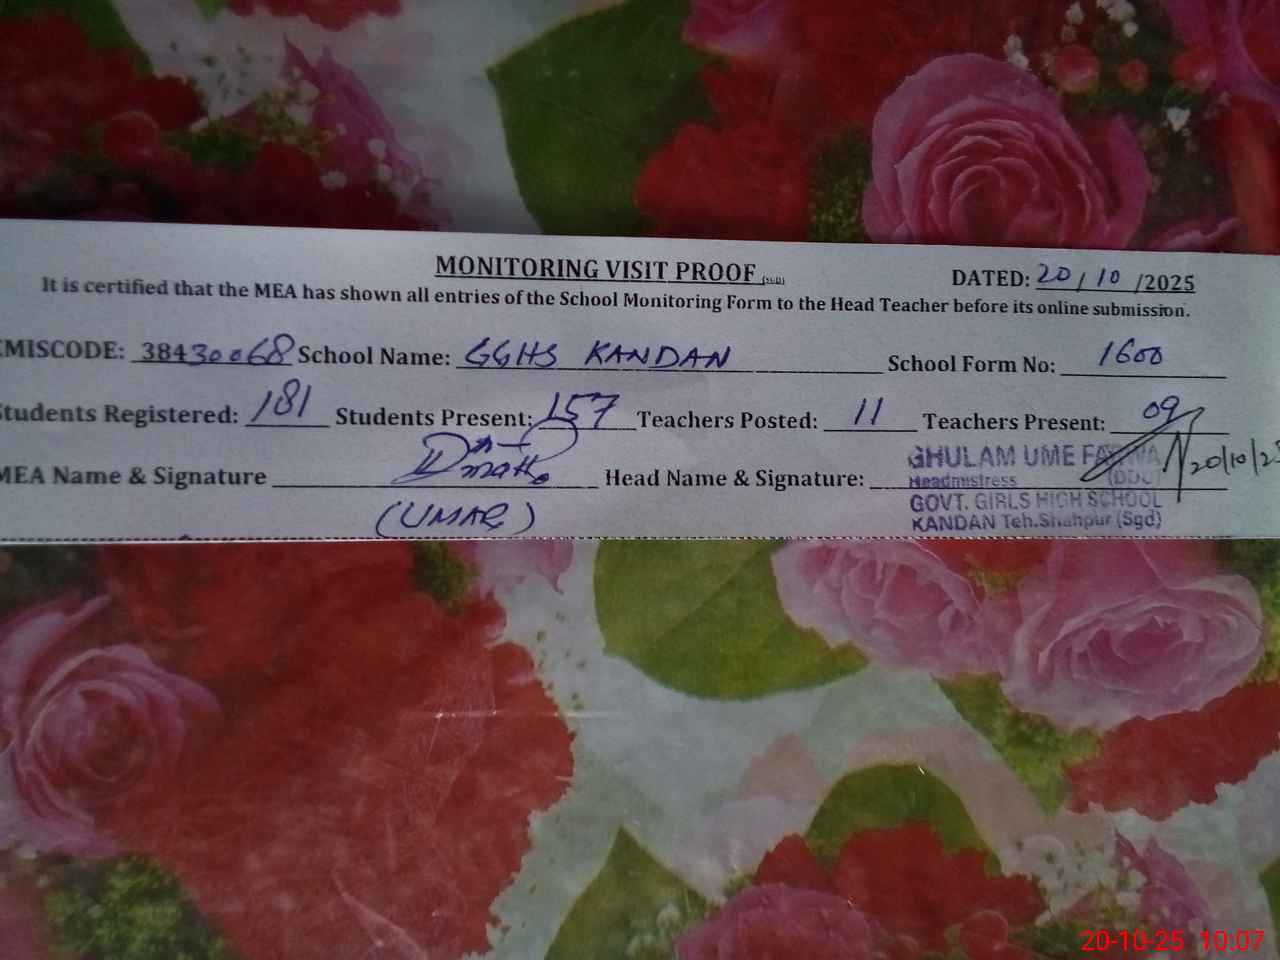 MONITORING VISIT PROOF (SGD)
DATED: 20/10/2025
It is certified that the MEA has shown all entries of the School Monitoring Form to the Head Teacher before its online submission.
EMISCODE: 38430068 School Name: GGHS KANDAN School Form No: 1600
Students Registered: 181 Students Present: 157 Teachers Posted: 11 Teachers Present: 09
MEA Name & Signature Head Name & Signature: 20/10/25
(UMAR)
GHULAM UME
Headmistress (DDO)
GOVT. GIRLS HIGH SCHOOL
KANDAN Teh.Shahpur (Sgd)
20-10-25 10:07